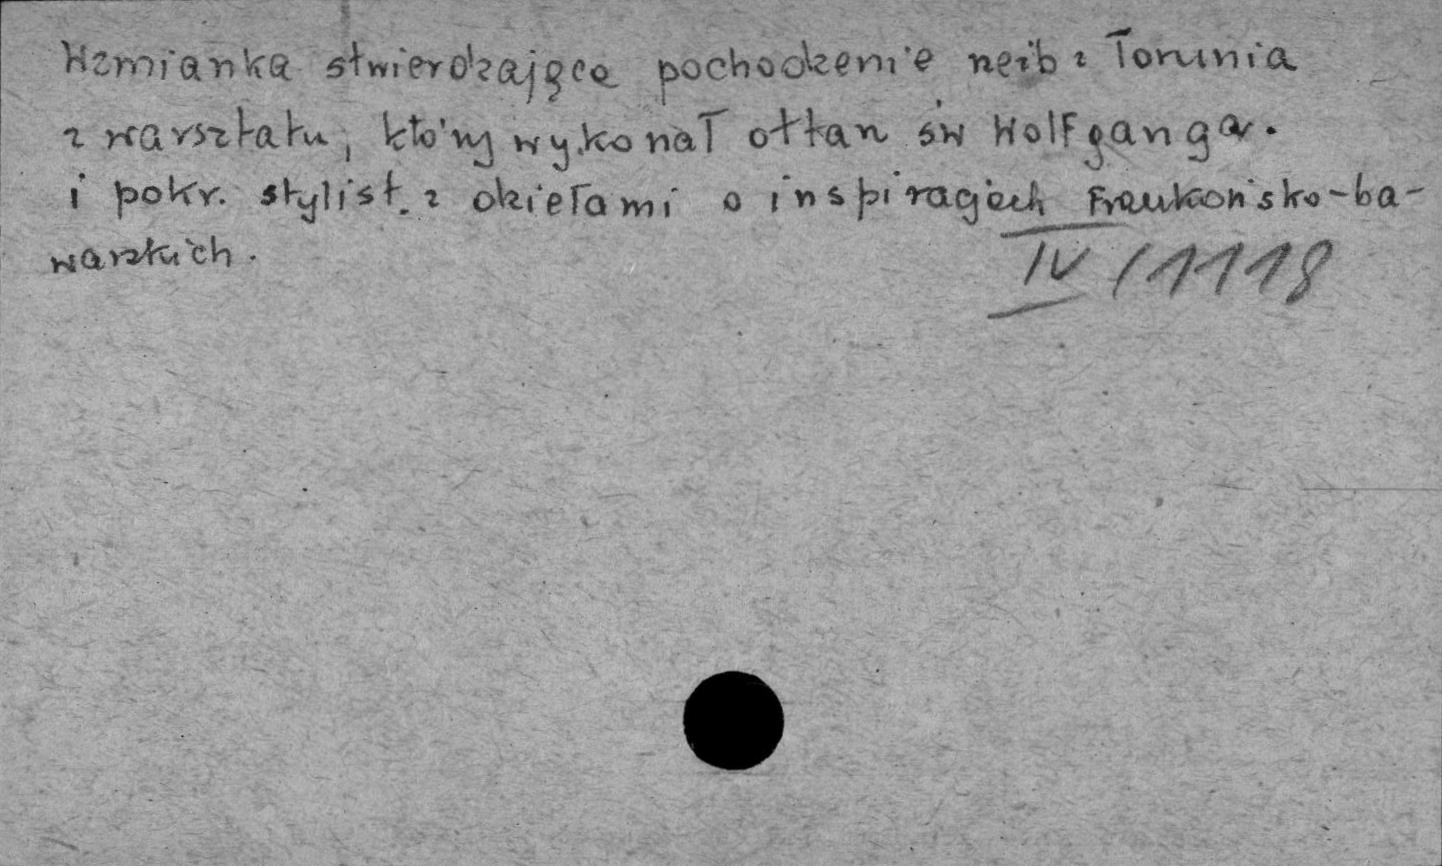 Wzmianka stwierdzająca pochodzenie rzeźb z Torunia
z warsztatu, który wykonał ołtarz św Wolfganga.
i pokr. stylist. z dziełami o inspiracjach frankońsko-ba-
warskich.
IV/1118